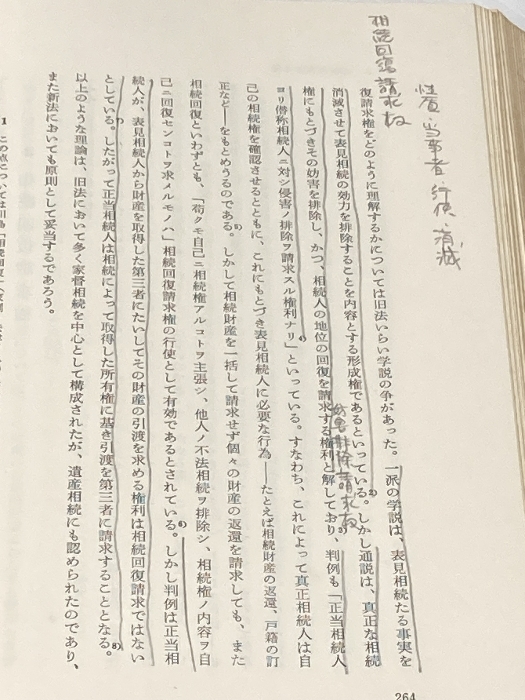 相続回復請求权
性質・当事者 行使 消滅
復請求権をどのように理解するかについては旧法いらい学説の争があった。一派の学説は、表見相続たる事実を
消滅させて表見相続の効力を排除することを内容とする形成権であるといっている。しかし通説は、真正な相続
妨害排除請求权
権にもとづきその妨害を排除し、かつ、相続人の地位の回復を請求する権利と解しており、判例も「正当相続人
ヨリ僭称相続人ニ対シ侵害ノ排除ヲ請求スル権利ナリ」といっている。すなわち、これによって真正相続人は自
己の相続権を確認させるとともに、これにもとづき表見相続人に必要な行為——たとえば相続財産の返還、戸籍の訂
正など——をもとめうるのである。しかして相続財産を一括して請求せず個々の財産の返還を請求しても、また
相続回復といわずとも、「苟クモ自己ニ相続権アルコトヲ主張シ、他人ノ不法相続ヲ排除シ、相続権ノ内容ヲ自
己ニ回復センコトヲ求メルモノハ」相続回復請求権の行使として有効であるとされている。6)しかし判例は正当相
続人が、表見相続人から財産を取得した第三者にたいしてその財産の引渡を求める権利は相続回復請求ではない
としている。7)したがって正当相続人は相続によって取得した所有権に基き引渡を第三者に請求することとなる。8)
以上のような理論は、旧法において多く家督相続を中心として構成されたが、遺産相続にも認められたのであり、
また新法においても原則として妥当するであろう。
1 この点については川島「相続回復
264